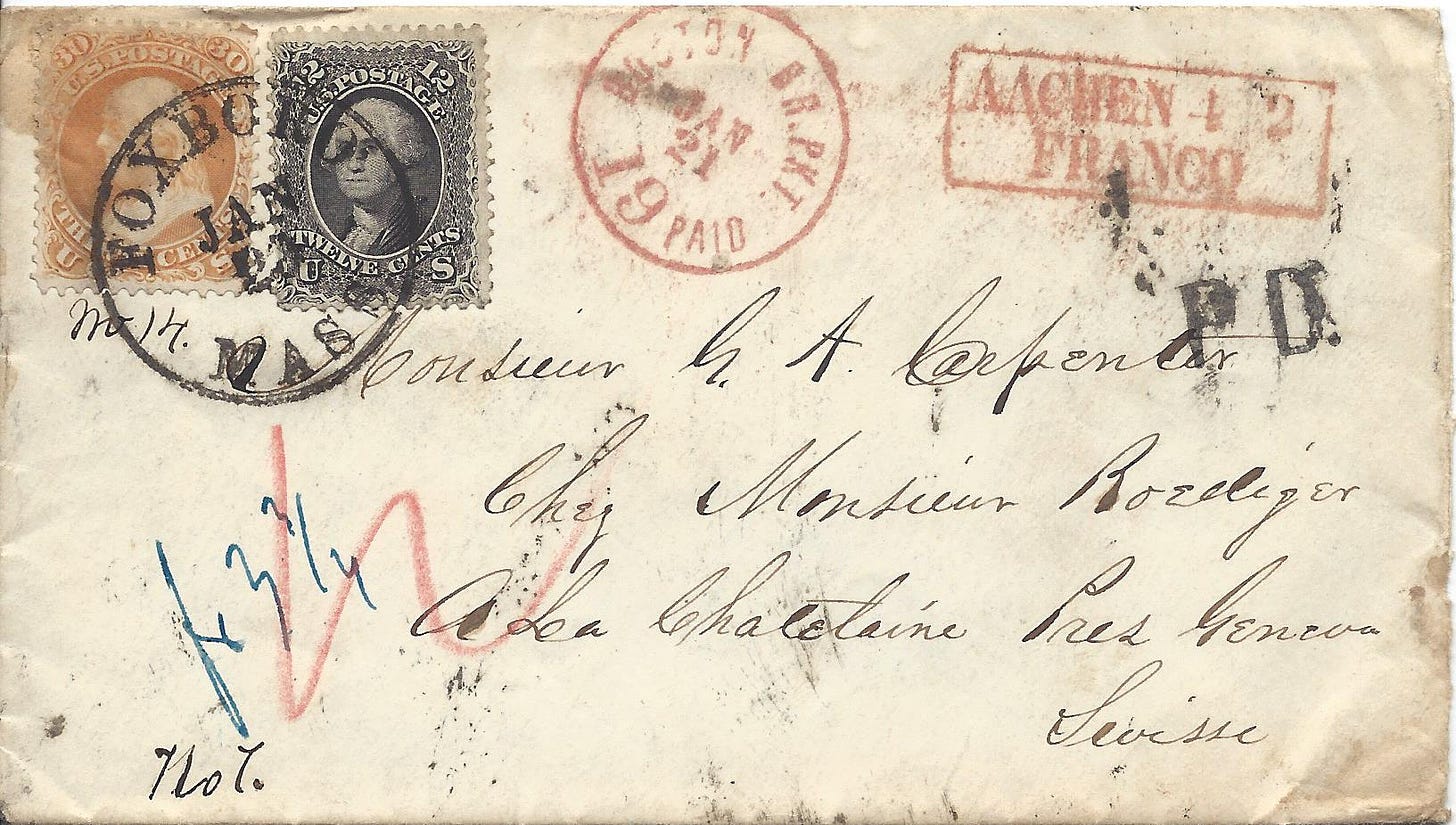 30 30
U.S. POSTAGE
U S
12 12
U.S. POSTAGE
TWELVE CENTS
U S
FOXBORO
JAN
MASS
BOSTON BR. PKT.
JAN
21
19 PAID
AACHEN 4 2
FRANCO
P D.
Monsieur G. A. Carpenter
Chez Monsieur Roediger
A La Chatelaine Pres Geneva
Suisse
f 3 3/4
No 7.